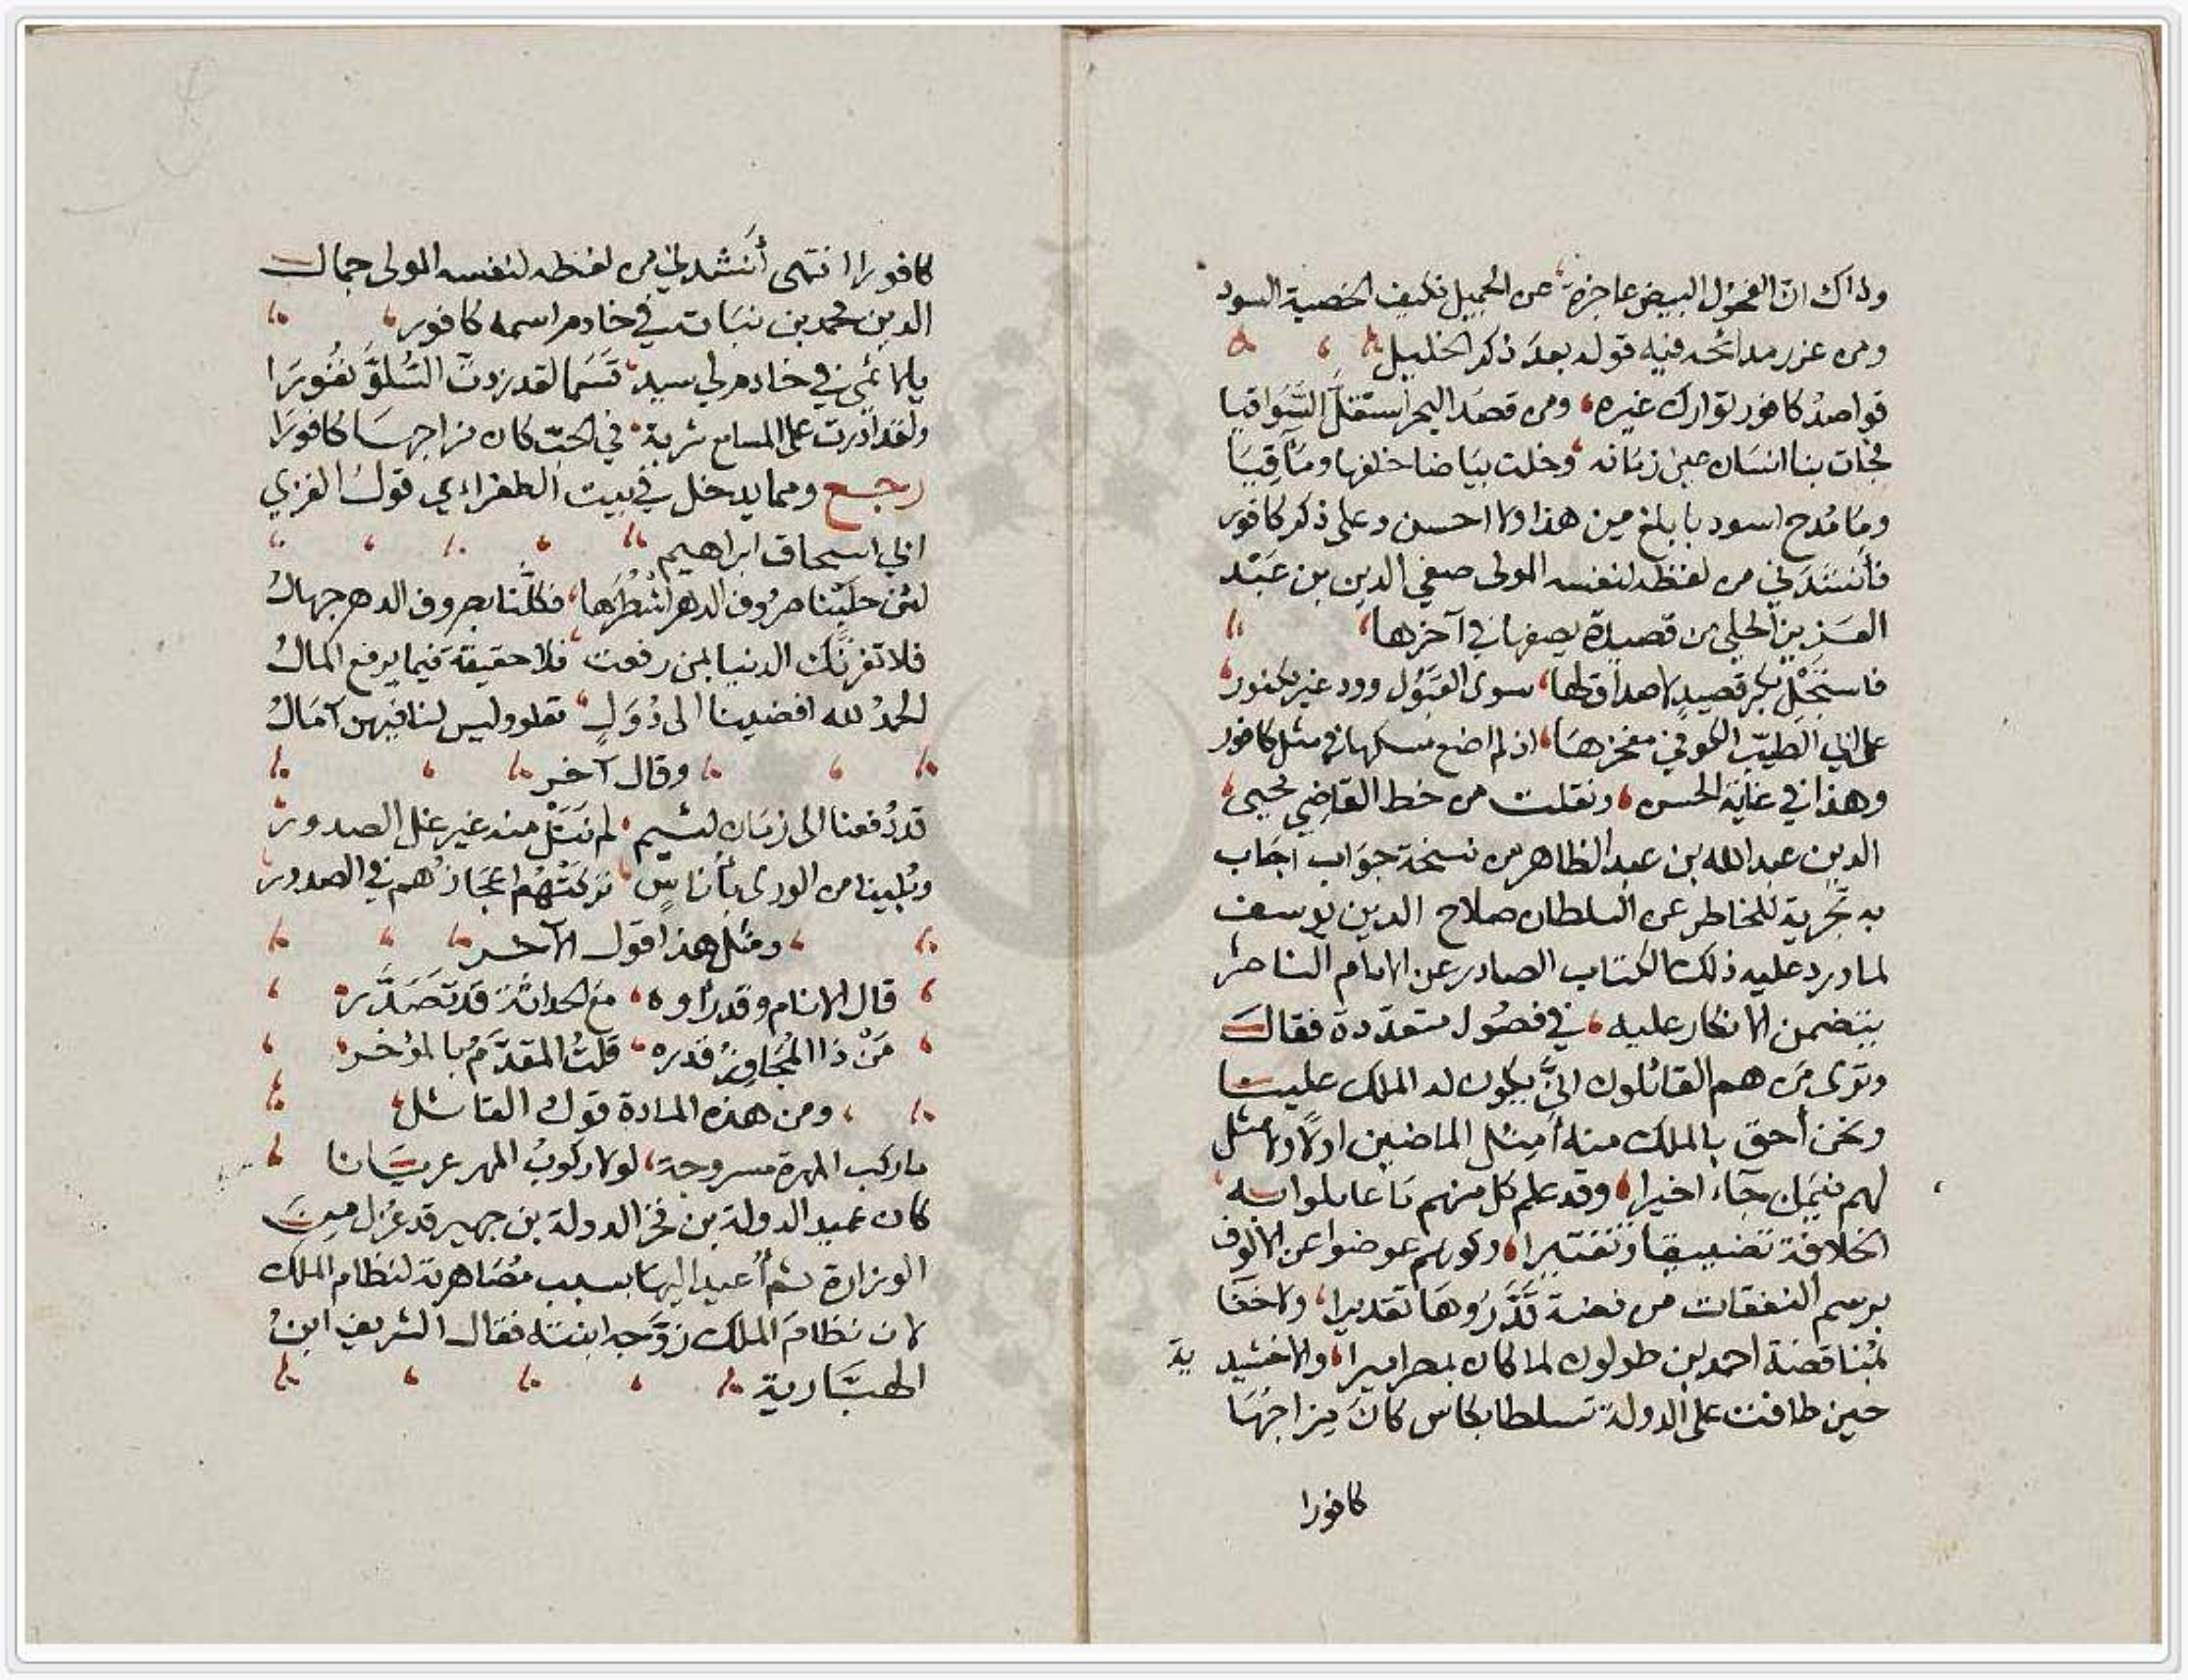 وذاك ان الفحول البيض عاجزة، عن الجميل فكيف الخصية السود
ومن غرر مدائحه فيه قوله بعد ذكر الخليل
قواصدُ كافور توارك غيره، ومن قصَد البحر استقلّ السَّوَاقيا
فجات بنا انسَان عين زمَانه، وخلت بيَاضا خلفها ومَآقِيَا
ومَا مُدح اسود بابلغ من هذا ولا احسن وعلى ذكر كافور
فأنشدَني من لفظه لنفسه المولى صفي الدين بن عَبْد
العَزيز الحلي من قصيدة يصفها في آخرها،
فاستَجْلِ بكر قصيدٍ لا صداق لها، سوى القَبُول وود غير مكفور،
على ابي الطيّب الكوفي مفخرهَا، اذ لم اضع مسكها في مثل كافور
وهذا في غاية الحسن، ونقلت من خط القاضي محيى،
الدين عبد الله بن عبد الظاهر من نسخة جوَاب أجَاب
به تجربة للخاطر عن السلطان صلاح الدين يوسف
لما ورد عليه ذلك الكتاب الصادر عن الامام الناصر،
يتضمن الانكار عليه، في فصُول متعدّدة فقالَ
وترى مَن هم القائلون انىَّ يكون له الملك علينا
ونحن أحق بالملك منه أمِثل الماضين اولًا ولا مثل
لهم فيمَن جَاء اخيرا، وقد علم كل منهم مَا عاملوا به،
الخلافة تضييقا وتقتيرا، وكونهم عوضوا عن الالوف
برسم النفقات من فضة قَدَّرُوهَا تقديرا، ولا خفَا
بمُناقضة احمد بن طولون لما كان بمصر اميرا، والاخشيد ية
حين طافت على الدولة تسلطا بكاس كانَ مِزاجُهَا
كافورا
كافورا انتهى أنشدني من لفظه لنفسه المولى جمال
الدين محمد بن نبَاتة في خادم اسمه كافور،
يا لائمي في خادم لي سيد، قَسَمًا لقد زدتَ السُّلوَّ نفُورَا
ولقد ادَرت على المسامع شربة، في الحبّ كان مزاجهَا كافورَا
رجع ومما يدخل في بيت الطغراءي قولُ الغزي
ابي اسحاق ابراهيم
لئن حلَبْنا صرُوف الدهر اشْطُرَها، فكلّنا بصروف الدهر جهالُ
فلا تغرنَّك الدنيا بمن رفعت، فلا حقيقة فيما يرفع المالُ
الحمدُ لله افضينا الى دُوَلٍ، تعلو وليس لنا فيهن آمَالُ
وقال آخر
قد دُفعنا الى زمَان لئيم، لم نَنَلْ منه غير غل الصدور،
وبُلينا من الورى بأناسٍ، تركَتْهُم اعجَازُهم في الصدور،
ومثل هذا قول الآخر
قال الانام وقد رأوه، مع الحداثة قد تَصَدَّر،
مَنْ ذا المُجَاوِزُ قدره، قلتُ المقدَّمُ بالمؤخر،
ومن هذه المادة قول القائل،
ما ركب المهرة مسروجة، لولا ركوبُ المهر عريَانا
كان عميد الدولة بن فخر الدولة بن جهير قد عُزل مِنَ
الوزارة ثم أُعيد اليهَا بسبب مُصَاهرته لنظام الملك
لان نظامَ الملك زوَّجه ابنته فقال الشريف ابنُ
الهبَّارية